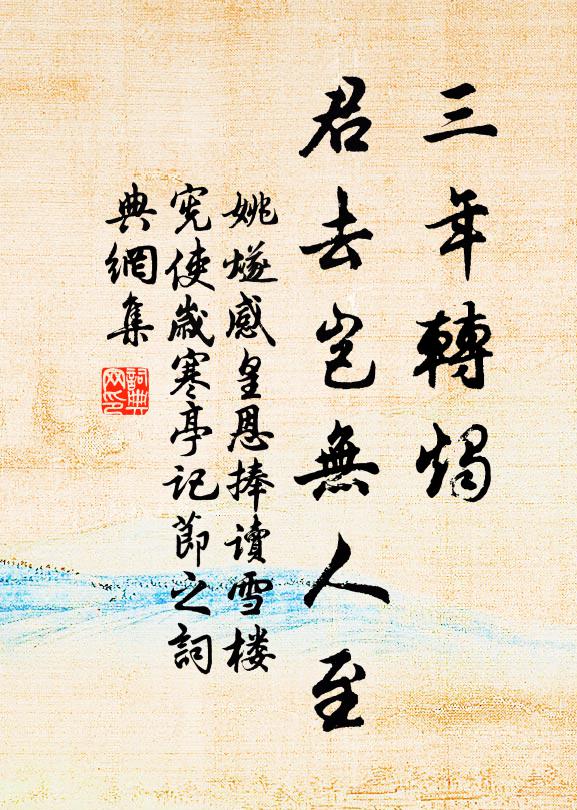 三年轉燭
君去岂無人至
姚燧感皇恩捧读雪楼
宪使歲寒亭记節之詞
典網集
詞典
网印